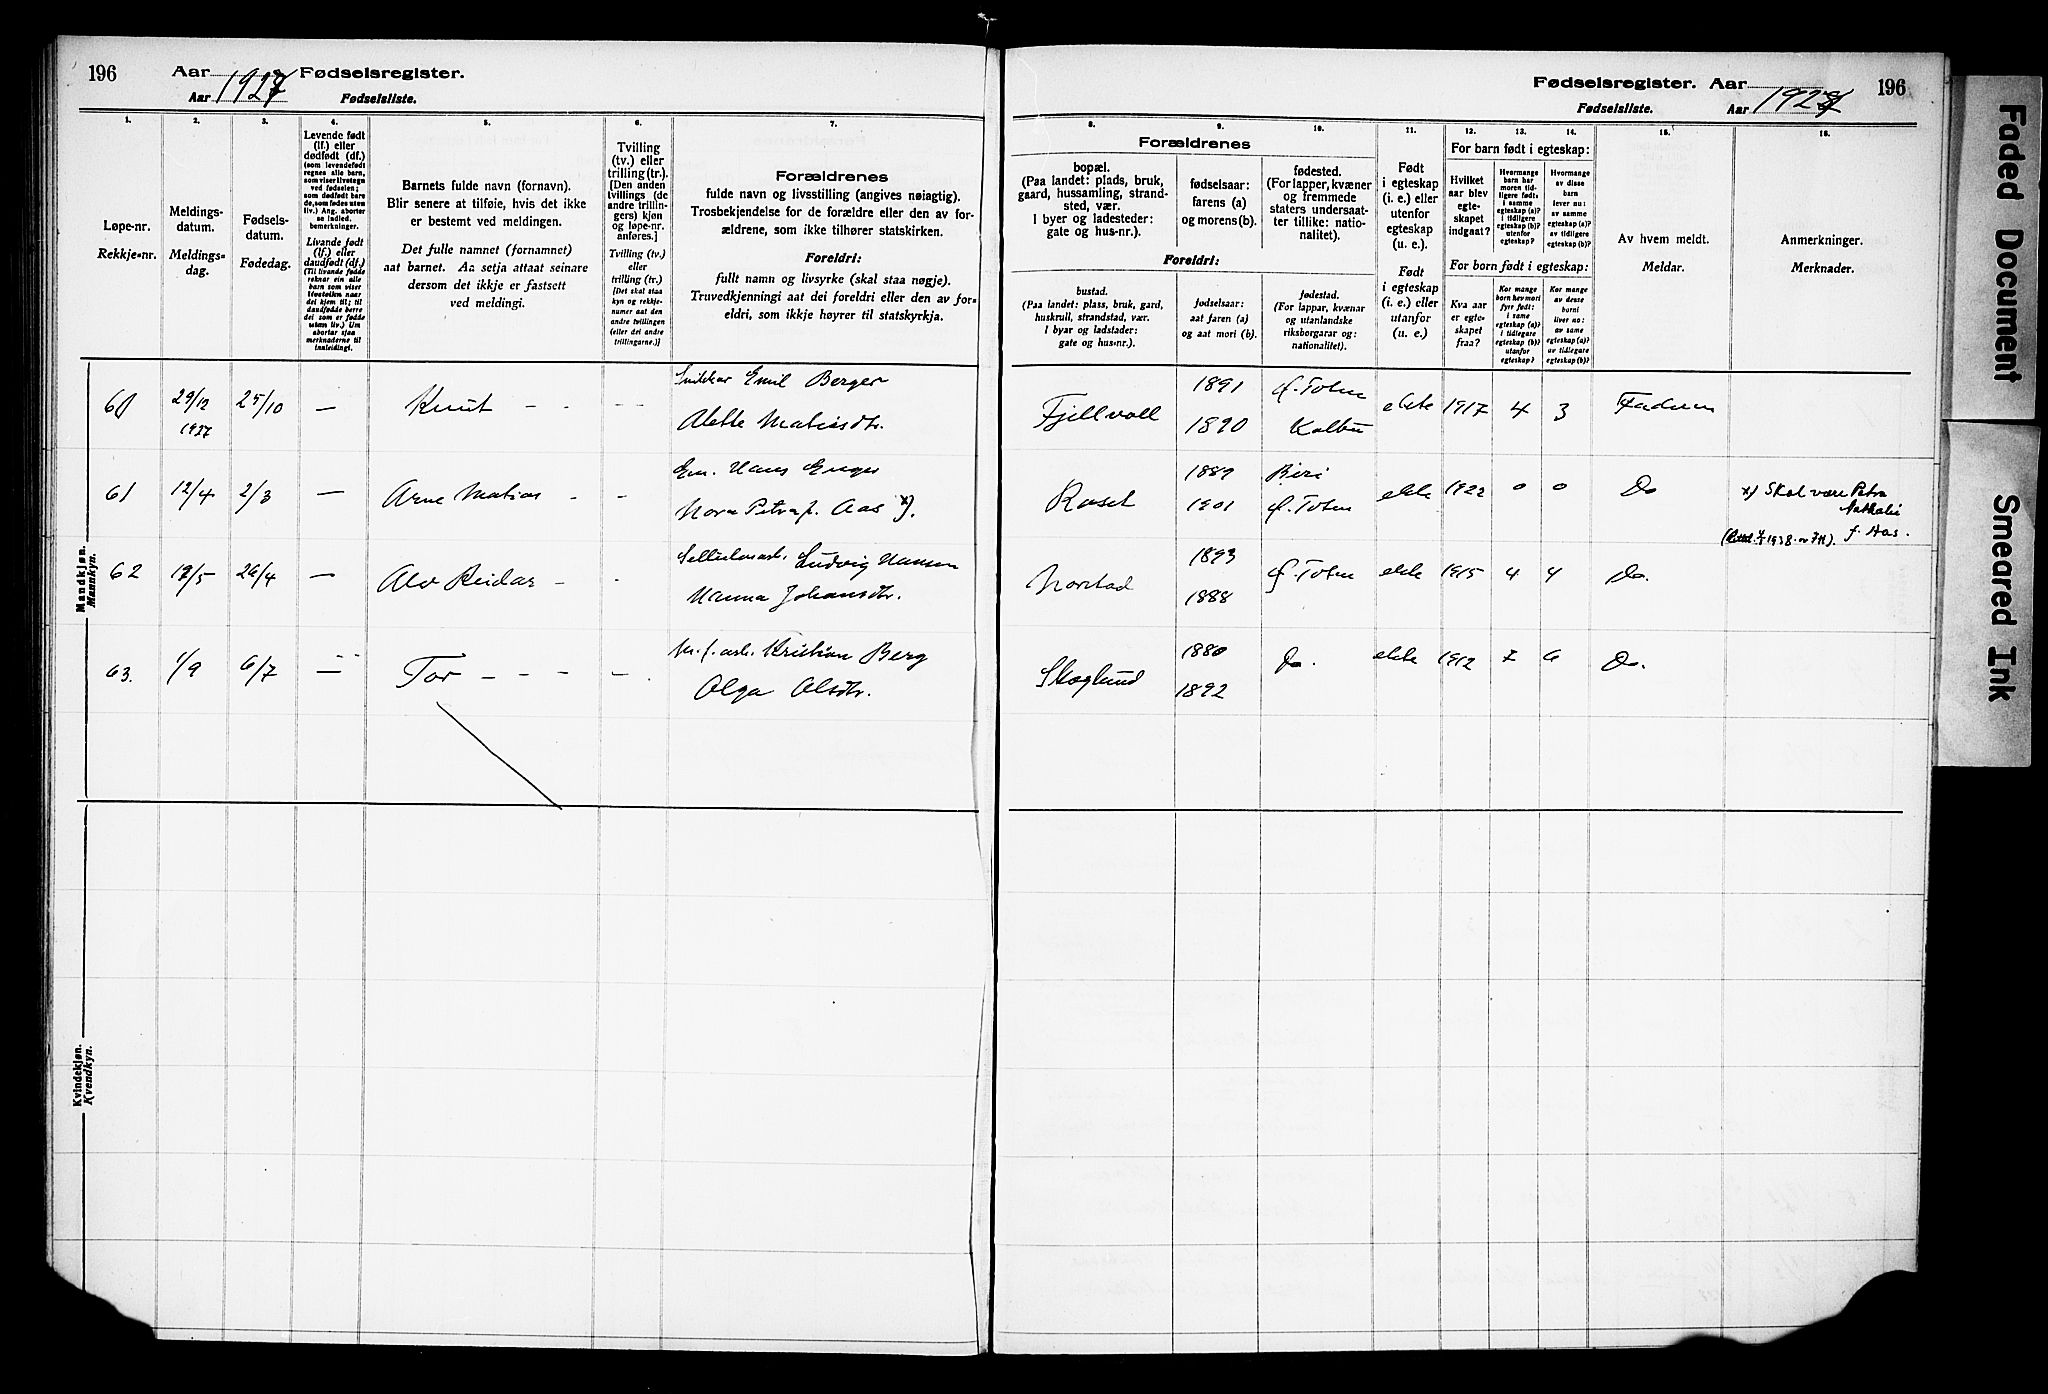 196
Aar 1927 Fødselsregister.
Aar Fødselsliste.
1. 2. 3. 4. 5. 6. 7.
Løpe-nr.
Rekkje-nr.
Meldings-
datum.
Meldings-
dag.
Fødsels-
datum.
Fødedag.
Levende født
(lf.) eller
dødfødt (df.)
(som levendefødt
regnes alle barn,
som viser livstegn
ved fødselen;
som dødfødt bare
de, som fødes uten
liv.) Ang. aborter
se indled.
bemerkninger.
Livande født
(lf.) eller
daudfødt (df.)
Barnets fulde navn (fornavn).
Blir senere at tilføie, hvis det ikke
er bestemt ved meldingen.
Det fulle namnet (fornamnet)
aat barnet. Aa setja attaat seinare
dersom det ikkje er fastsett
ved meldingi.
Tvilling
(tv.) eller
trilling (tr.).
[Den anden
tvillings (de
andre trillin-
gers) kjøn
og løpe-nr.
anføres.]
Tvilling (tv.)
eller
trilling (tr.)
[Det skal staa
kyn og rekkje-
numer aat den
andre tvillingen
(eller dei andre
trillingarne.)]
Forældrenes
fulde navn og livsstilling (angives nøiagtig).
Trosbekjendelse for de forældre eller den av for-
ældrene, som ikke tilhører statskirken.
Foreldri:
fullt namn og livsyrke (skal staa nøgje).
Truvedkjenningi aat dei foreldri eller den av for-
eldri, som ikkje høyrer til statskyrkja.
Mandkjøn.
Mannkyn.
60 29/12 25/10 — Knut - - - - Emil Berger
1937 Alette Matiasdtr.
61 12/4 2/3 — Arne Matias - - Em. Hans Enger
Nora Petra f. Aas x).
62 17/5 26/4 — Alv Reidar - - Ludvig Hansen
Hanna Johansdtr.
63. 1/9 6/7 — Tor - - - - - Kristian Berg
Olga Olsdtr.
Kvindekjøn.
Kvendkyn.
Fødselsregister. Aar 1927 196
Fødselsliste. Aar
8. 9. 10. 11. 12. 13. 14. 15. 16.
Forældrenes
bopæl.
(Paa landet: plads, bruk,
gaard, hussamling, strand-
sted, vær.
I byer og ladesteder:
gate og hus-nr.).
fødselsaar:
farens (a)
og morens (b).
fødested.
(For lapper, kvæner
og fremmede
staters undersaat-
ter tillike: natio-
nalitet).
Foreldri:
bustad.
(Paa landet: plass, bruk, gard,
huskrull, strandstad, vær.
I byar og ladstader:
gate og hus-nr.).
fødselsaar:
aat faren (a)
og aat mori (b).
fødestad.
(For lappar, kvænar
og utanlandske
riksborgarar og:
nationalitet).
Født
i egteskap
(i. e.) eller
utenfor
egteskap
(u. e.).
Født
i egteskap
(i. e.) eller
utanfor
(u. e.).
For barn født i egteskap:
Hvilket
aar blev
egte-
skapet
indgaat?
Hvormange
barn har
moren tid-
ligere født:
i samme
egteskap (a)?
i tidligere
egteskap (b)?
utenfor
egteskap?
Hvormange
av disse
barn
lever nu:
av samme
egteskap (a)?
av tidligere
egteskap (b)?
For born født i egteskap:
Kva aar
er egte-
skapet
fraa?
Kor mange
born hev mori
fyrr født:
i same
egteskap (a)?
i tidlegare
egteskap (b)?
utanfor
egteskap?
Kor mange
av desse
borni
liver no:
av same
egteskap (a)?
av tidlegare
egteskap (b)?
Av hvem meldt.
Meldar.
Anmerkninger.
Merknader.
Fjellvoll 1891 Ø. Toten ekte 1917 4 3 Faderen
1890 Kolbu
Roset 1889 Biri ekte 1922 0 0 Do x) Skal være Petra
1901 Ø. Toten Nathalie
f. Aas.
Norstad 1893 Ø. Toten ekte 1915 4 4 Do.
1888
Skoglund 1880 Do. ekte 1912 7 6 Do.
1892
Faded Document
Smeared Ink